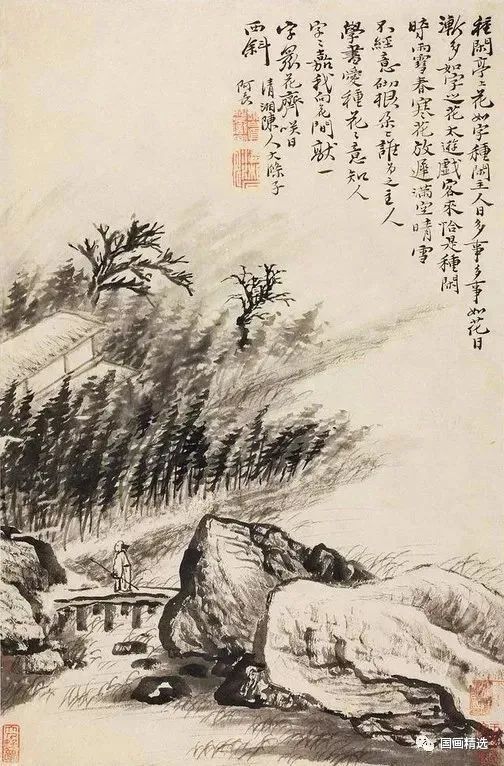 種閑亭上花如字種閑主人日多事多事如花日
漸多如字之花太遊戲客來恰是種閑
時雨雪春寒花放遲滿空晴雪
不經意砌根朵〻誰為之主人
學書愛種花〻意知人
字〻嘉我向花間獻一
字眾花齊咲日
西斜
清湘陳人大滌子
阿長
国画精选